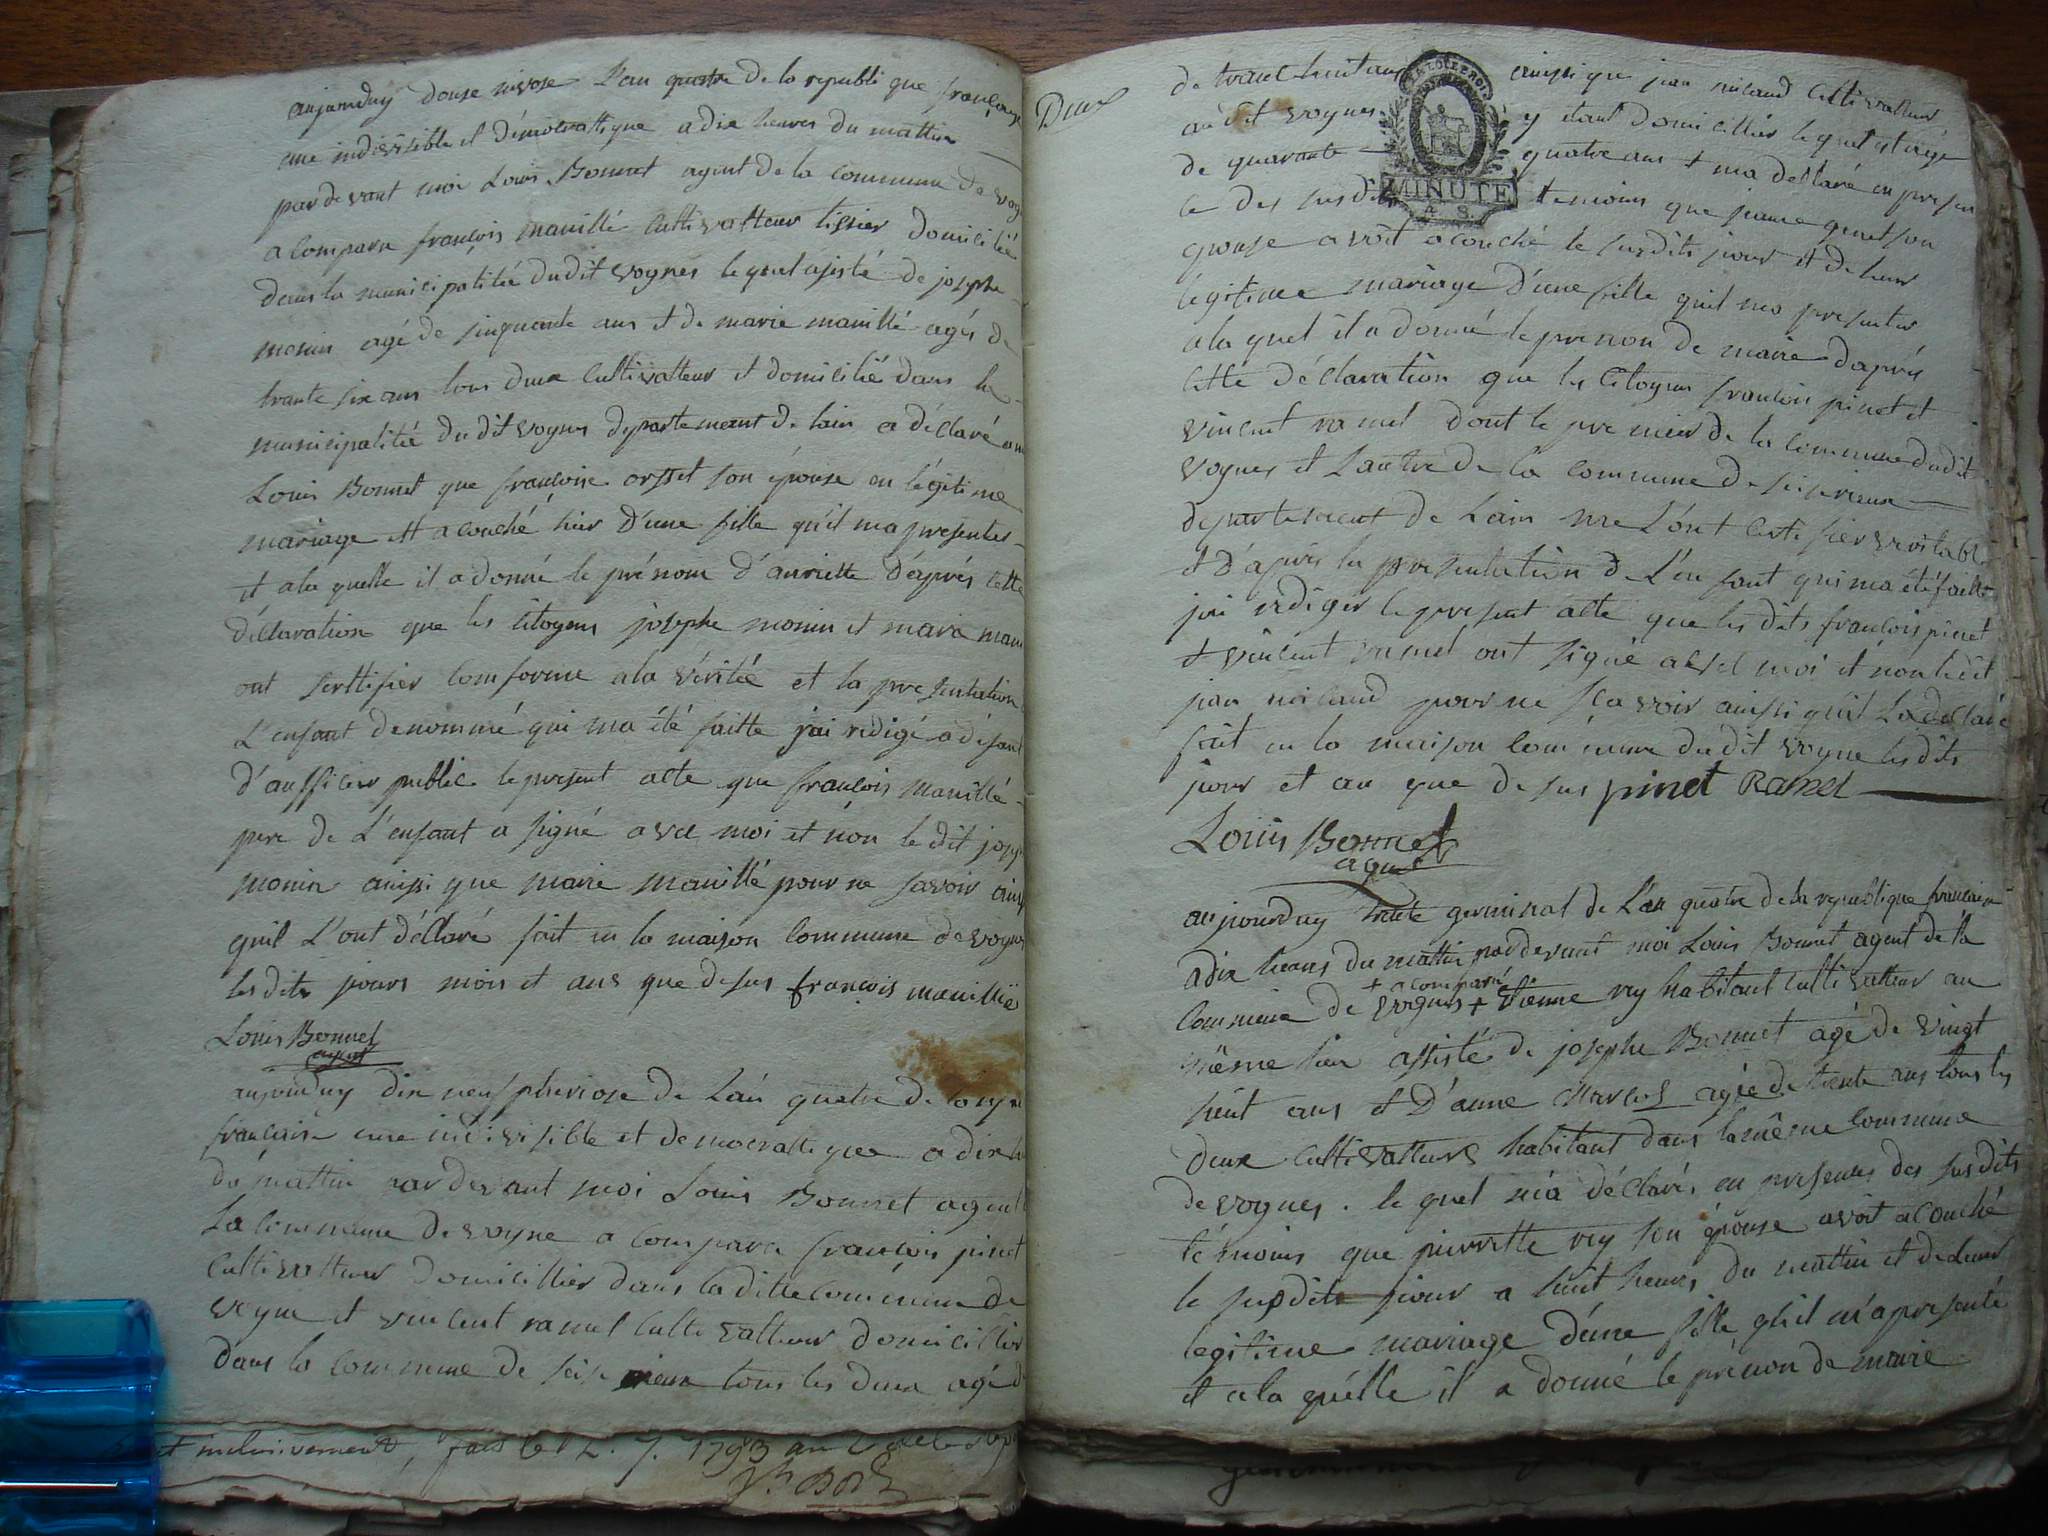 aujourduy douse nivose L'an quatre de la republi que françoise
une indivisible et démocrattique a dix heures du mattin
pardevant moi Louis Bonnet agent de la commune de vog
a comparu françois manillé cultivatteur tissier domicilié
dans la municipalitée dudit vognes le quel asisté de josephe
monin agé de sinquante ans et de marie manillé agés de
trante six ans tous deux cultivatteur et domicilié dans la
municipalitée du dit vognes departement de lain a déclaré a m
Louis Bonnet que françoise orsset son épouse en légitime
mariage et acouché hier d'une fille qu'il ma presentes
et a la quelle il a donné le prénom d'anriette d'aprés cette
déclaration que les citoyens josephe monin et marie mani
ont serttifier comforme a la véritée et la presentation
L'enfant denommé qui ma été faitte j'ai redigé a défaut
d'aufficier public le present acte que françois manillé
pere de L'enfant a signé avec moi et non le dit josep
monin ainssi que marie manillé pour ne savoir ainsi
quil L'ont déclaré fait en la maison commune de vognes
les dits jours mois et ans que desus françois manillié
Louis Bonnet
agent
aujourduy dix neuf pluviose de L'an quatre de la repu
françoise une indivisible et democrattique a dix h
du mattin pardevant moi Louis Bonnet agent
La commune de vogne a comparu françois pinet
cultivatteur domicillier dans la ditte commune de
vogne et vincent ramel cultivatteur domicillier
dans la commune de seiserieux tous les deux agé d
Deux
de trante huit ans ainssi que jean cultivatteur
audit vognes y etant domicillier le quel est agé
de quarante quatre ans + ma déclaré en presen
ce des susdits temoins que son
epouse avoit acouché le susdits jour et de leur
légitime mariage d'une fille quil ma presentes
a la quel il a donné le prenon de marie d'aprés
cette déclaration que les citoyens françois pinet et
vincent ramel dont le premier de la commune dudit
vognes et Lautre de la commune de seiserieux
departement de Lain me L'ont certifier veritable
et d'aprés la presentation de L'enfant qui ma été faitte
jai rediger le present acte que les dits françois pinet
et vincent ramel ont signé avec moi et non ledit
jean pour ne sçavoir ainssi quil La déclaré
fait en la maison commune du dit vogne les dits
jour et an que desus pinet Ramel
Louis Bonnet
agent
MINUTE
4 S.
aujourduy trente germinal de L'an quatre de la republique francaise
a dix heures du mattin pardevant moi Louis Bonnet agent de la
+ a comparu
commune de vognes + étienne rey habitant cultivatteur au
même lieu assisté de josephe Bonnet agé de vingt
huit ans et D'anne agée de trente ans tous les
deux cultivatteurs habitant dans la même commune
de vognes . le quel m'a déclarés en presence des susdits
témoins que pierrette rey son épouse avoit acouché
le susdits jour a huit heures du mattin et de leur
légitime mariage d'une fille qu'il m'a presenté
et a la quélle il a donné le prénon de marie
et inclusivement, fait le 12. 7. 1793 an 2 de la Rep